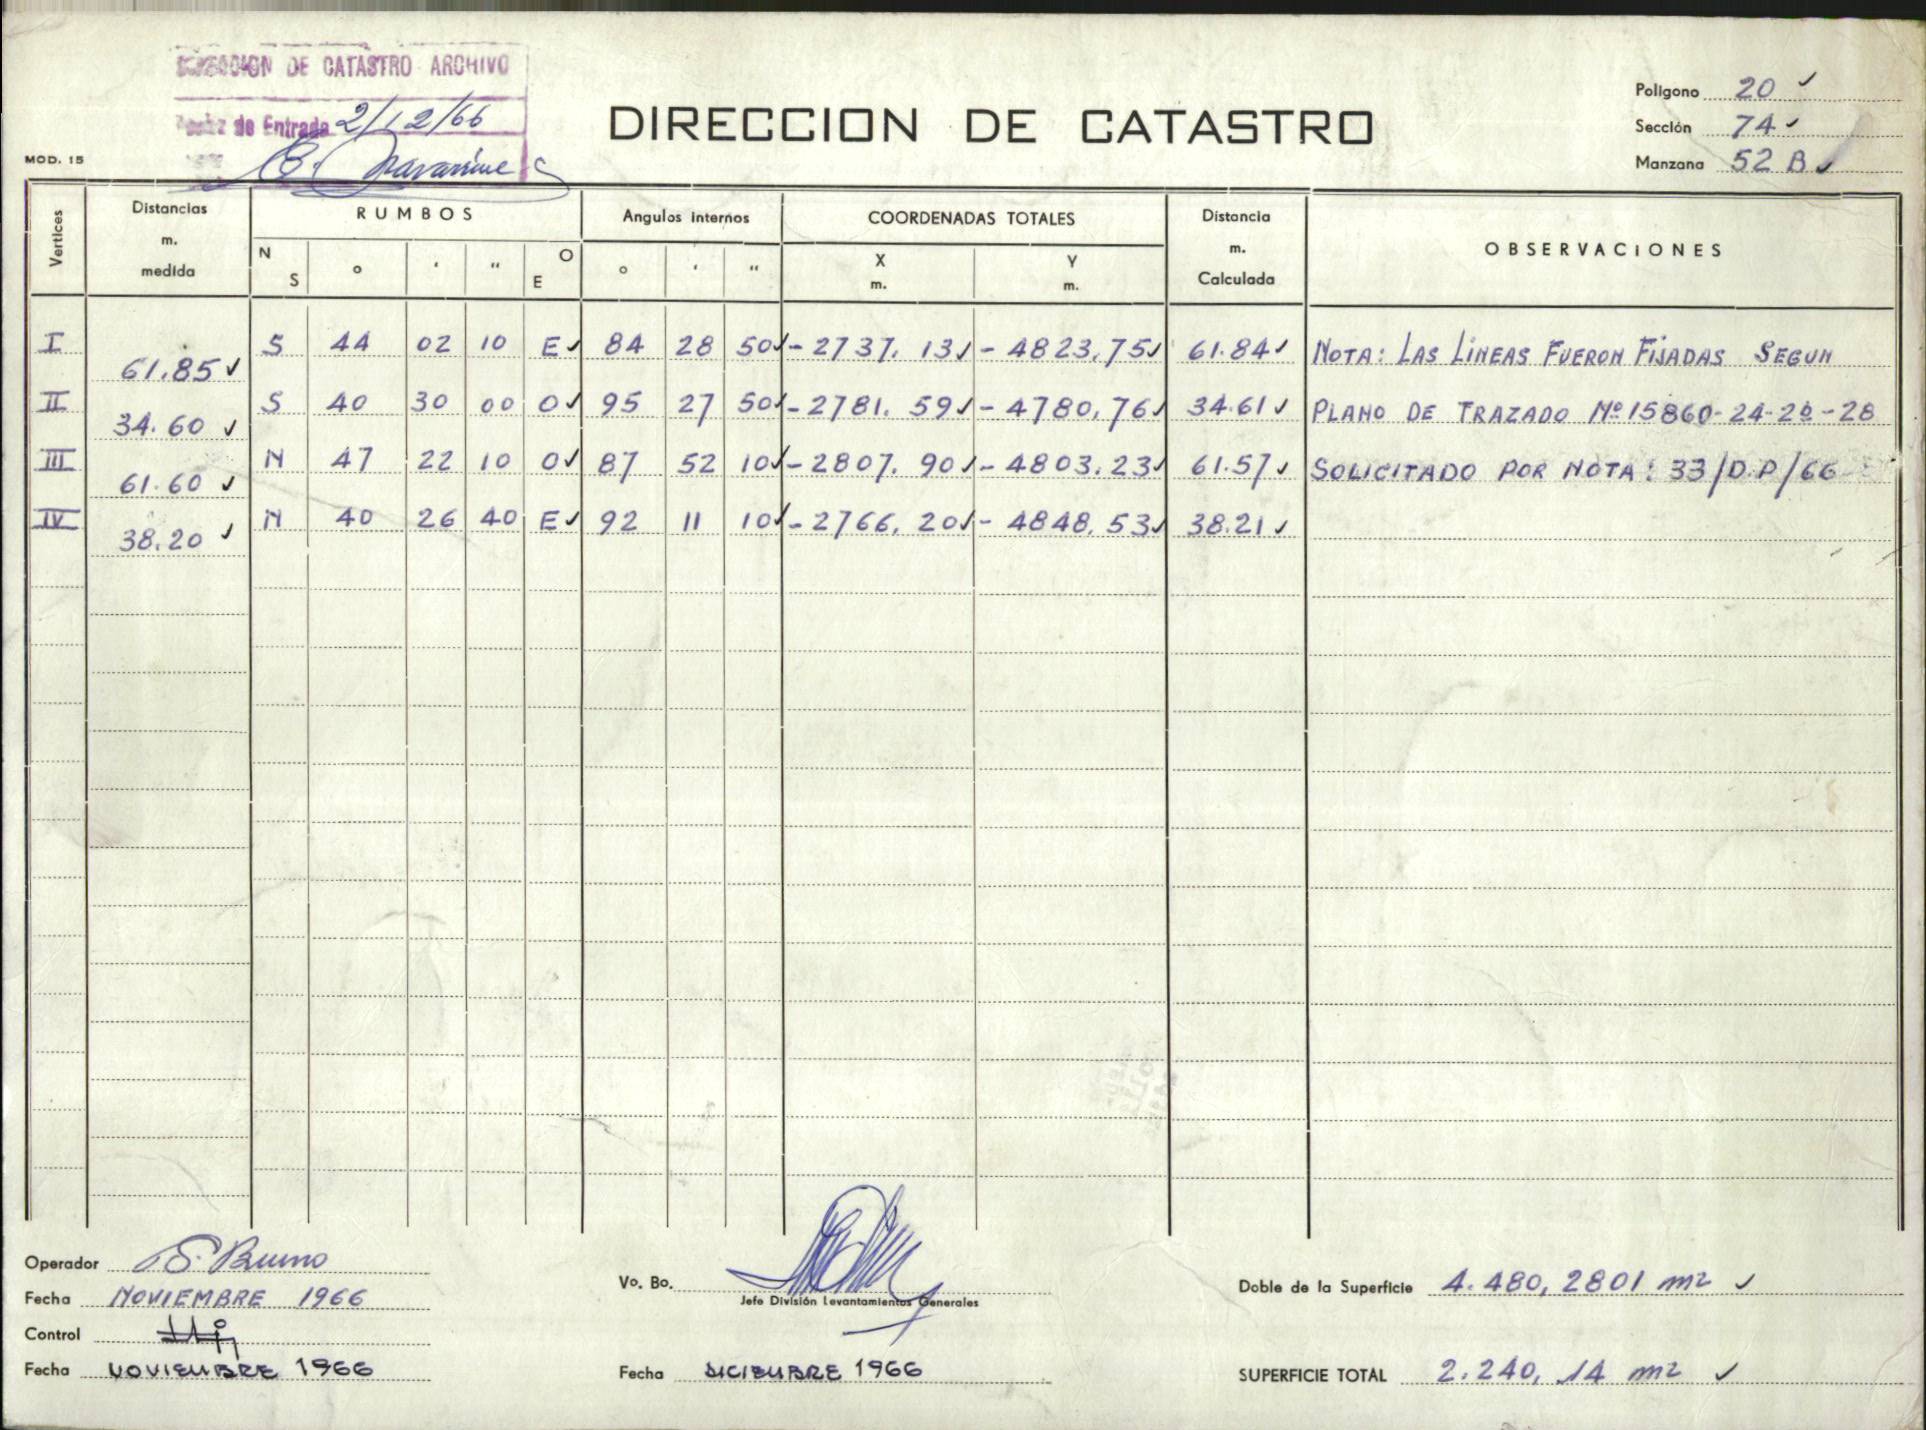 DIRECCION DE CATASTRO ARCHIVO
de Entrada 2/12/66
MOD. 15
DIRECCION DE CATASTRO
Poligono 20 ✓
Sección 74 ✓
Manzana 52 B ✓
Vertices Distancias m. medida RUMBOS Angulos internos COORDENADAS TOTALES Distancia m. Calculada OBSERVACIONES
N S ° ' " O E ° ' " X m. Y m.
I 61.85 ✓ S 44 02 10 E ✓ 84 28 50 ✓ - 2737. 13 ✓ - 4823,75 ✓ 61.84 ✓ NOTA: LAS LINEAS FUERON FIJADAS SEGUN
II 34.60 ✓ S 40 30 00 O ✓ 95 27 50 ✓ - 2781. 59 ✓ - 4780,76 ✓ 34.61 ✓ PLANO DE TRAZADO Nº 15860-24-26-28
III 61.60 ✓ N 47 22 10 O ✓ 87 52 10 ✓ - 2807. 90 ✓ - 4803.23 ✓ 61.57 ✓ SOLICITADO POR NOTA: 33/D.P/66
IV 38.20 ✓ N 40 26 40 E ✓ 92 11 10 ✓ - 2766, 20 ✓ - 4848, 53 ✓ 38.21 ✓
Operador S. Bruno
Fecha NOVIEMBRE 1966
Control
Fecha NOVIEMBRE 1966
Vo. Bo.
Jefe División Levantamientos Generales
Fecha DICIEMBRE 1966
Doble de la Superficie 4.480, 2801 m2 ✓
SUPERFICIE TOTAL 2.240, 14 m2 ✓